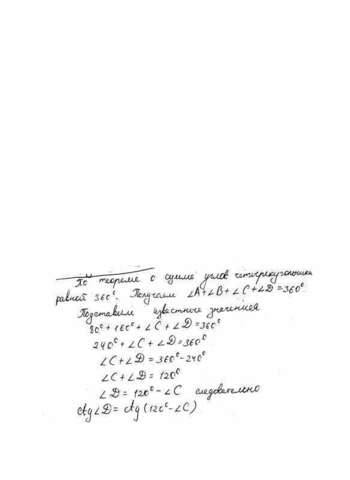 По теореме о сумме углов четырехугольника
равной 360°. Получаем ∠A+∠B+∠C+∠D=360°
Подставим известные значения
80°+160°+∠C+∠D=360°
240°+∠C+∠D=360°
∠C+∠D=360°-240°
∠C+∠D=120°
∠D=120°-∠C следовательно
ctg∠D=ctg(120°-∠C)